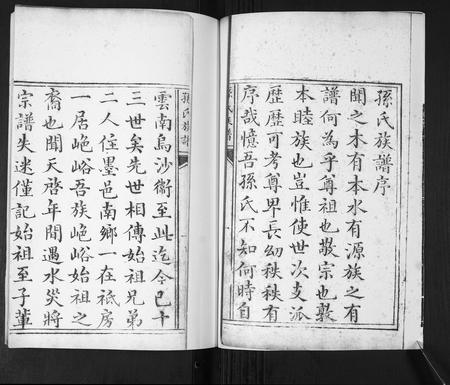 孫氏族譜序
聞之木有本水有源族之有
譜何為乎尊祖也敬宗也敦
本睦族也豈惟使世次支派
歴歴可考尊卑長幼秩秩有
序哉憶吾孫氏不知何時自
孫氏族譜
雲南烏沙衛至此迄今已十
三世矣先世相傳始祖兄弟
二人住墨邑南鄉一在祇房
一居峗峪吾族峗峪始祖之
裔也聞天啓年間遇水災將
宗譜失迷僅記始祖至子軰